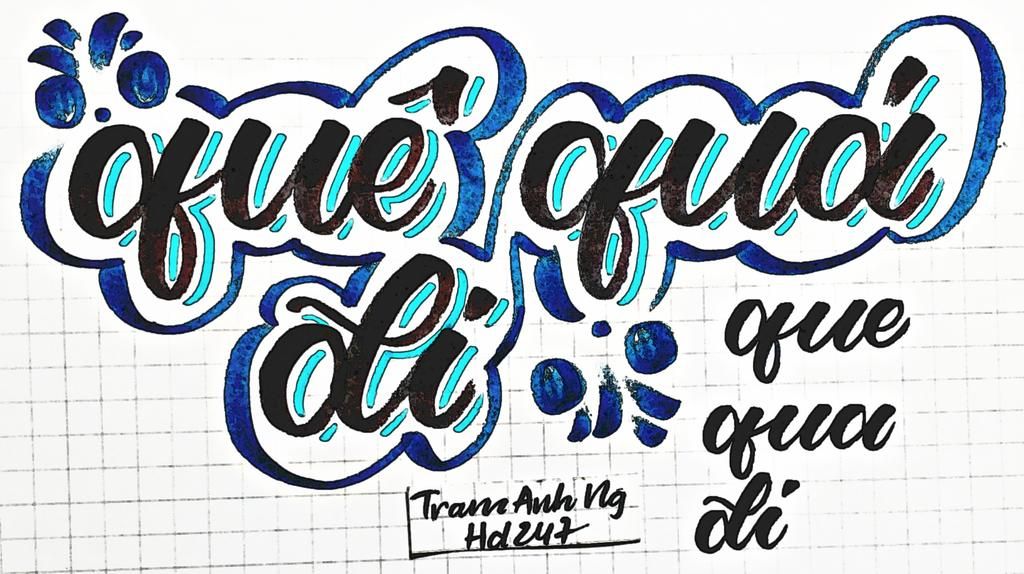 quê quá
đi
que
qua
đi
Tram Anh Ng
Hd247